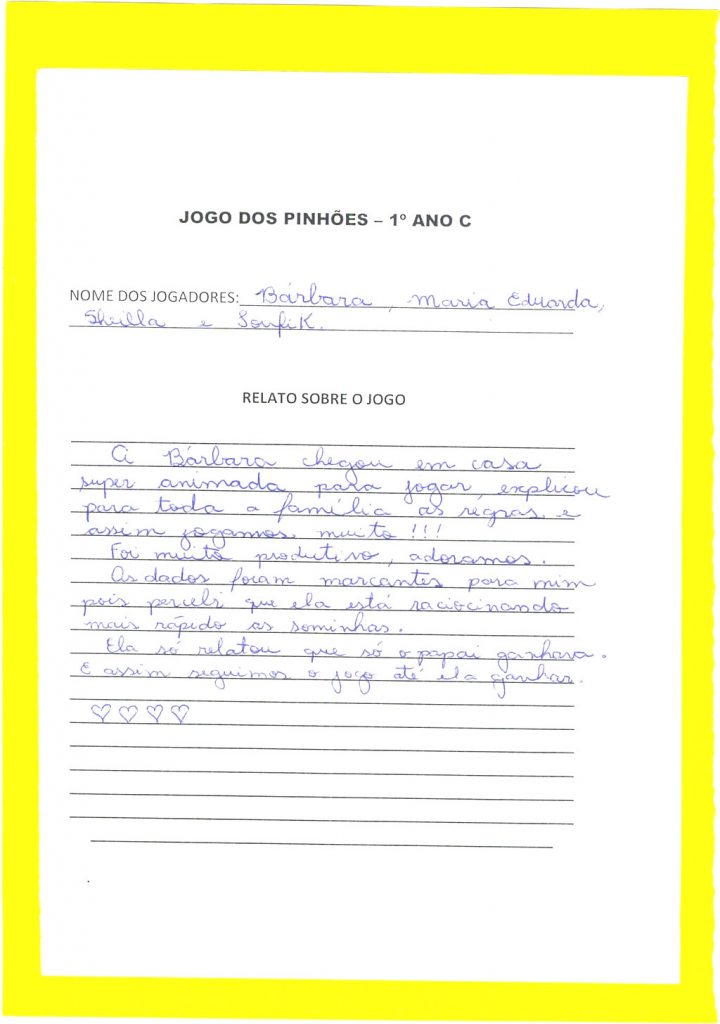 JOGO DOS PINHÕES – 1º ANO C
NOME DOS JOGADORES: Bárbara, Maria Eduarda,
Sheilla e Soufik.
RELATO SOBRE O JOGO
A Bárbara chegou em casa
super animada para jogar, explicou
para toda a família as regras e
assim jogamos muito!!!
Foi muito produtivo, adoramos.
Os dados foram marcantes para mim
pois percebi que ela está raciocinando
mais rápido as sominhas.
Ela só relatou que só o papai ganhava.
E assim seguimos o jogo até ela ganhar.
♡♡♡♡